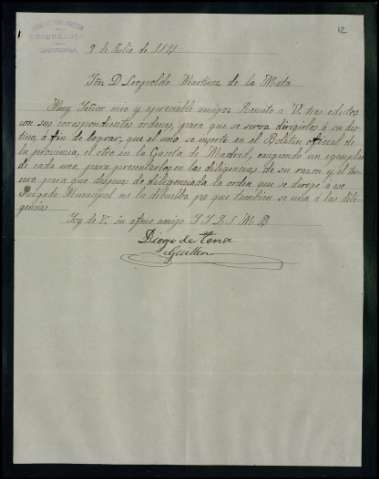 12
9 de Julio de 18
Sr. D. Leopoldo Martinez de la Mata
Muy Señor mio y apreciable amigo: Remito a V. tres edictos
con sus correspondientes órdenes, para que se sirva dirigirlos á su des-
tino, á fin de lograr, que el uno se inserte en el Boletin oficial de
la provincia, el otro en la Gaceta de Madrid, exigiendo un ejemplar
de cada uno, para presentarlos en las diligencias de su razon y el ter-
cero, para que despues de diligenciada la orden que se dirige á ese
Juzgado Municipal me la debuelba pa que tambien se una a las dili-
gencias
Soy de V. su afmo amigo S. S. Q. S. M. B.
Diego de Tena
Guillen